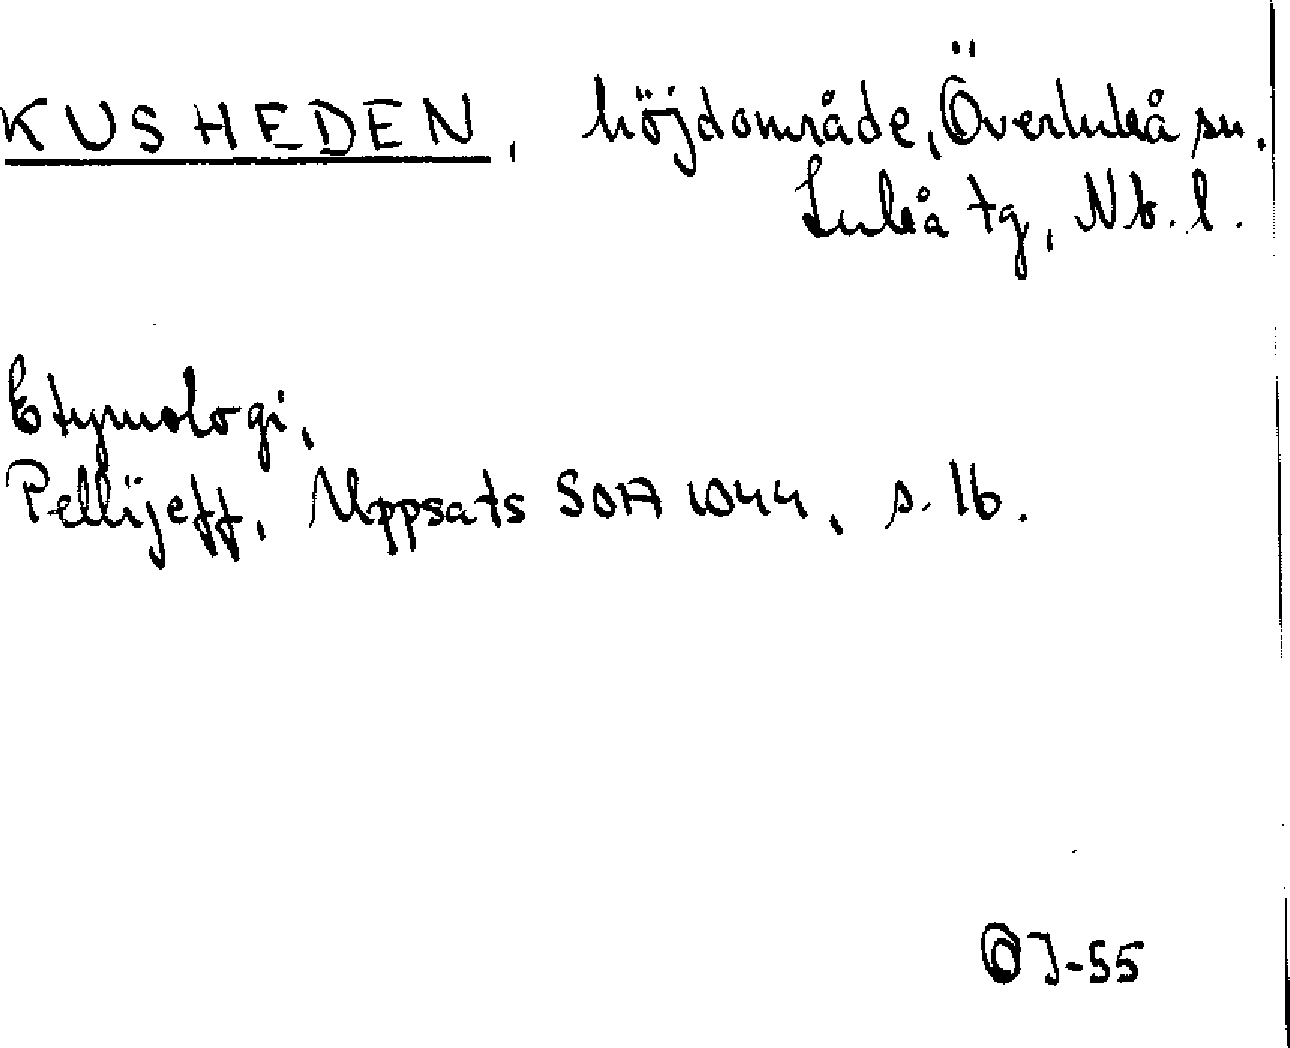 KUSHEDEN, höjdområde, Överluleå sn.
Luleå tg, Nb. l.
Etymologi.
Pellijeff, Uppsats SOA 1044, s. 16.
OJ-55